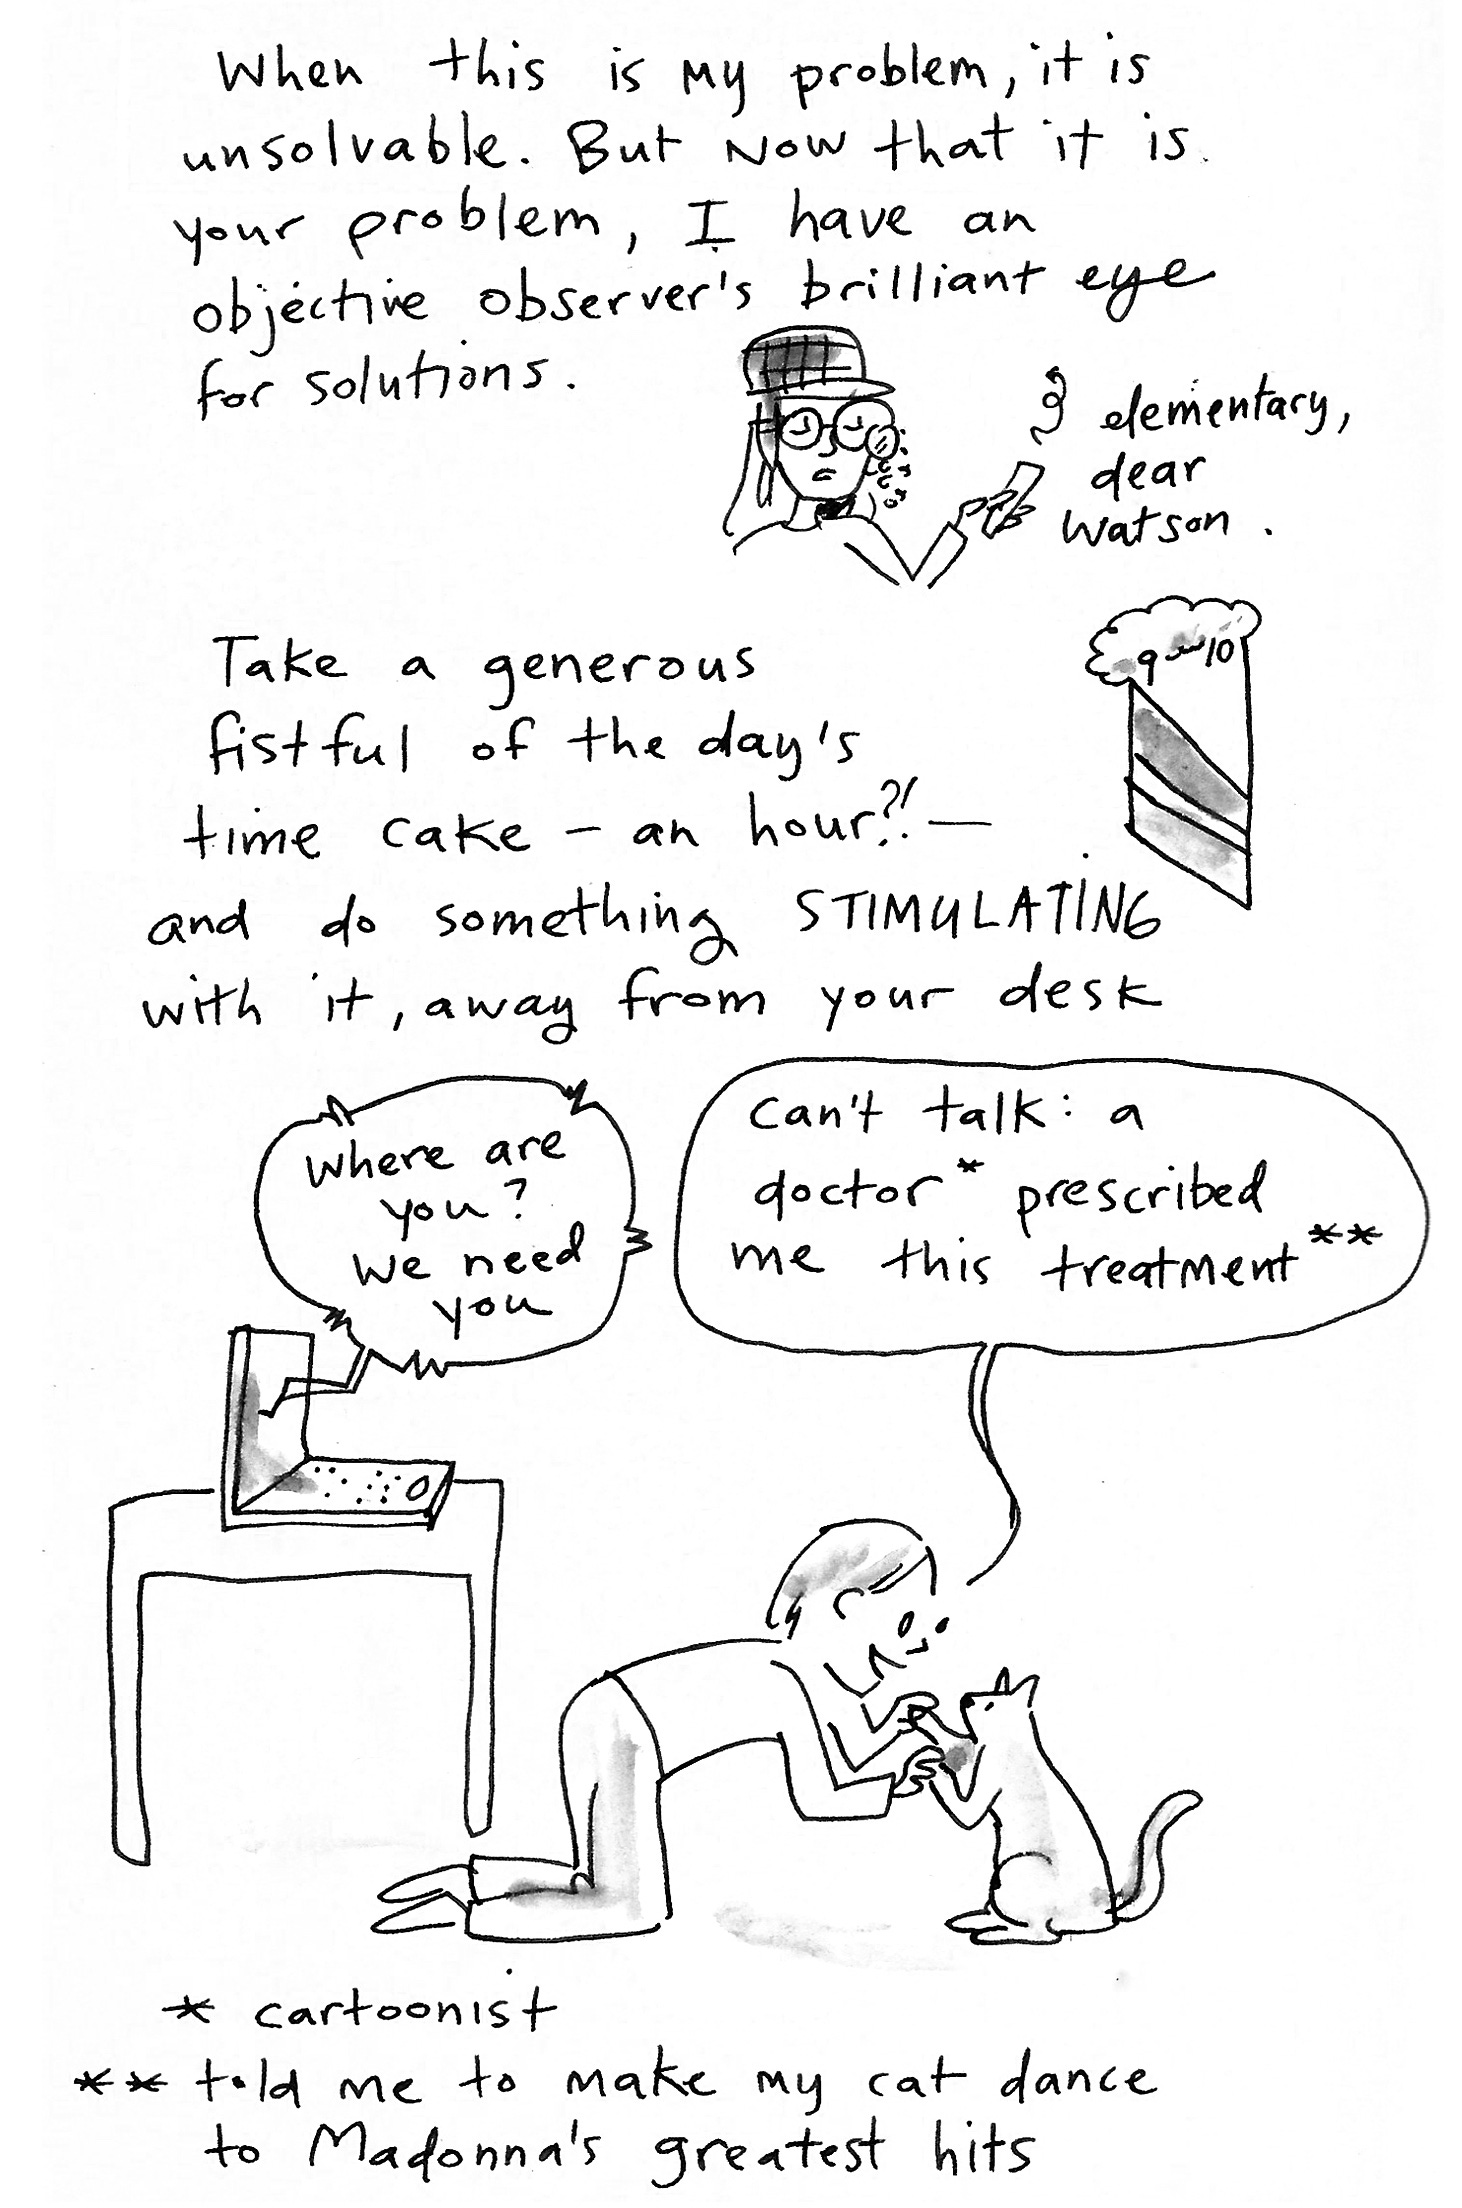 When this is my problem, it is
unsolvable. But now that it is
your problem, I have an
objective observer's brilliant eye
for solutions.
elementary,
dear
Watson.
Take a generous
fistful of the day's
time cake – an hour?! –
and do something STIMULATING
with it, away from your desk
9 10
where are
you?
we need
you
can't talk: a
doctor* prescribed
me this treatment**
* cartoonist
** told me to make my cat dance
to Madonna's greatest hits